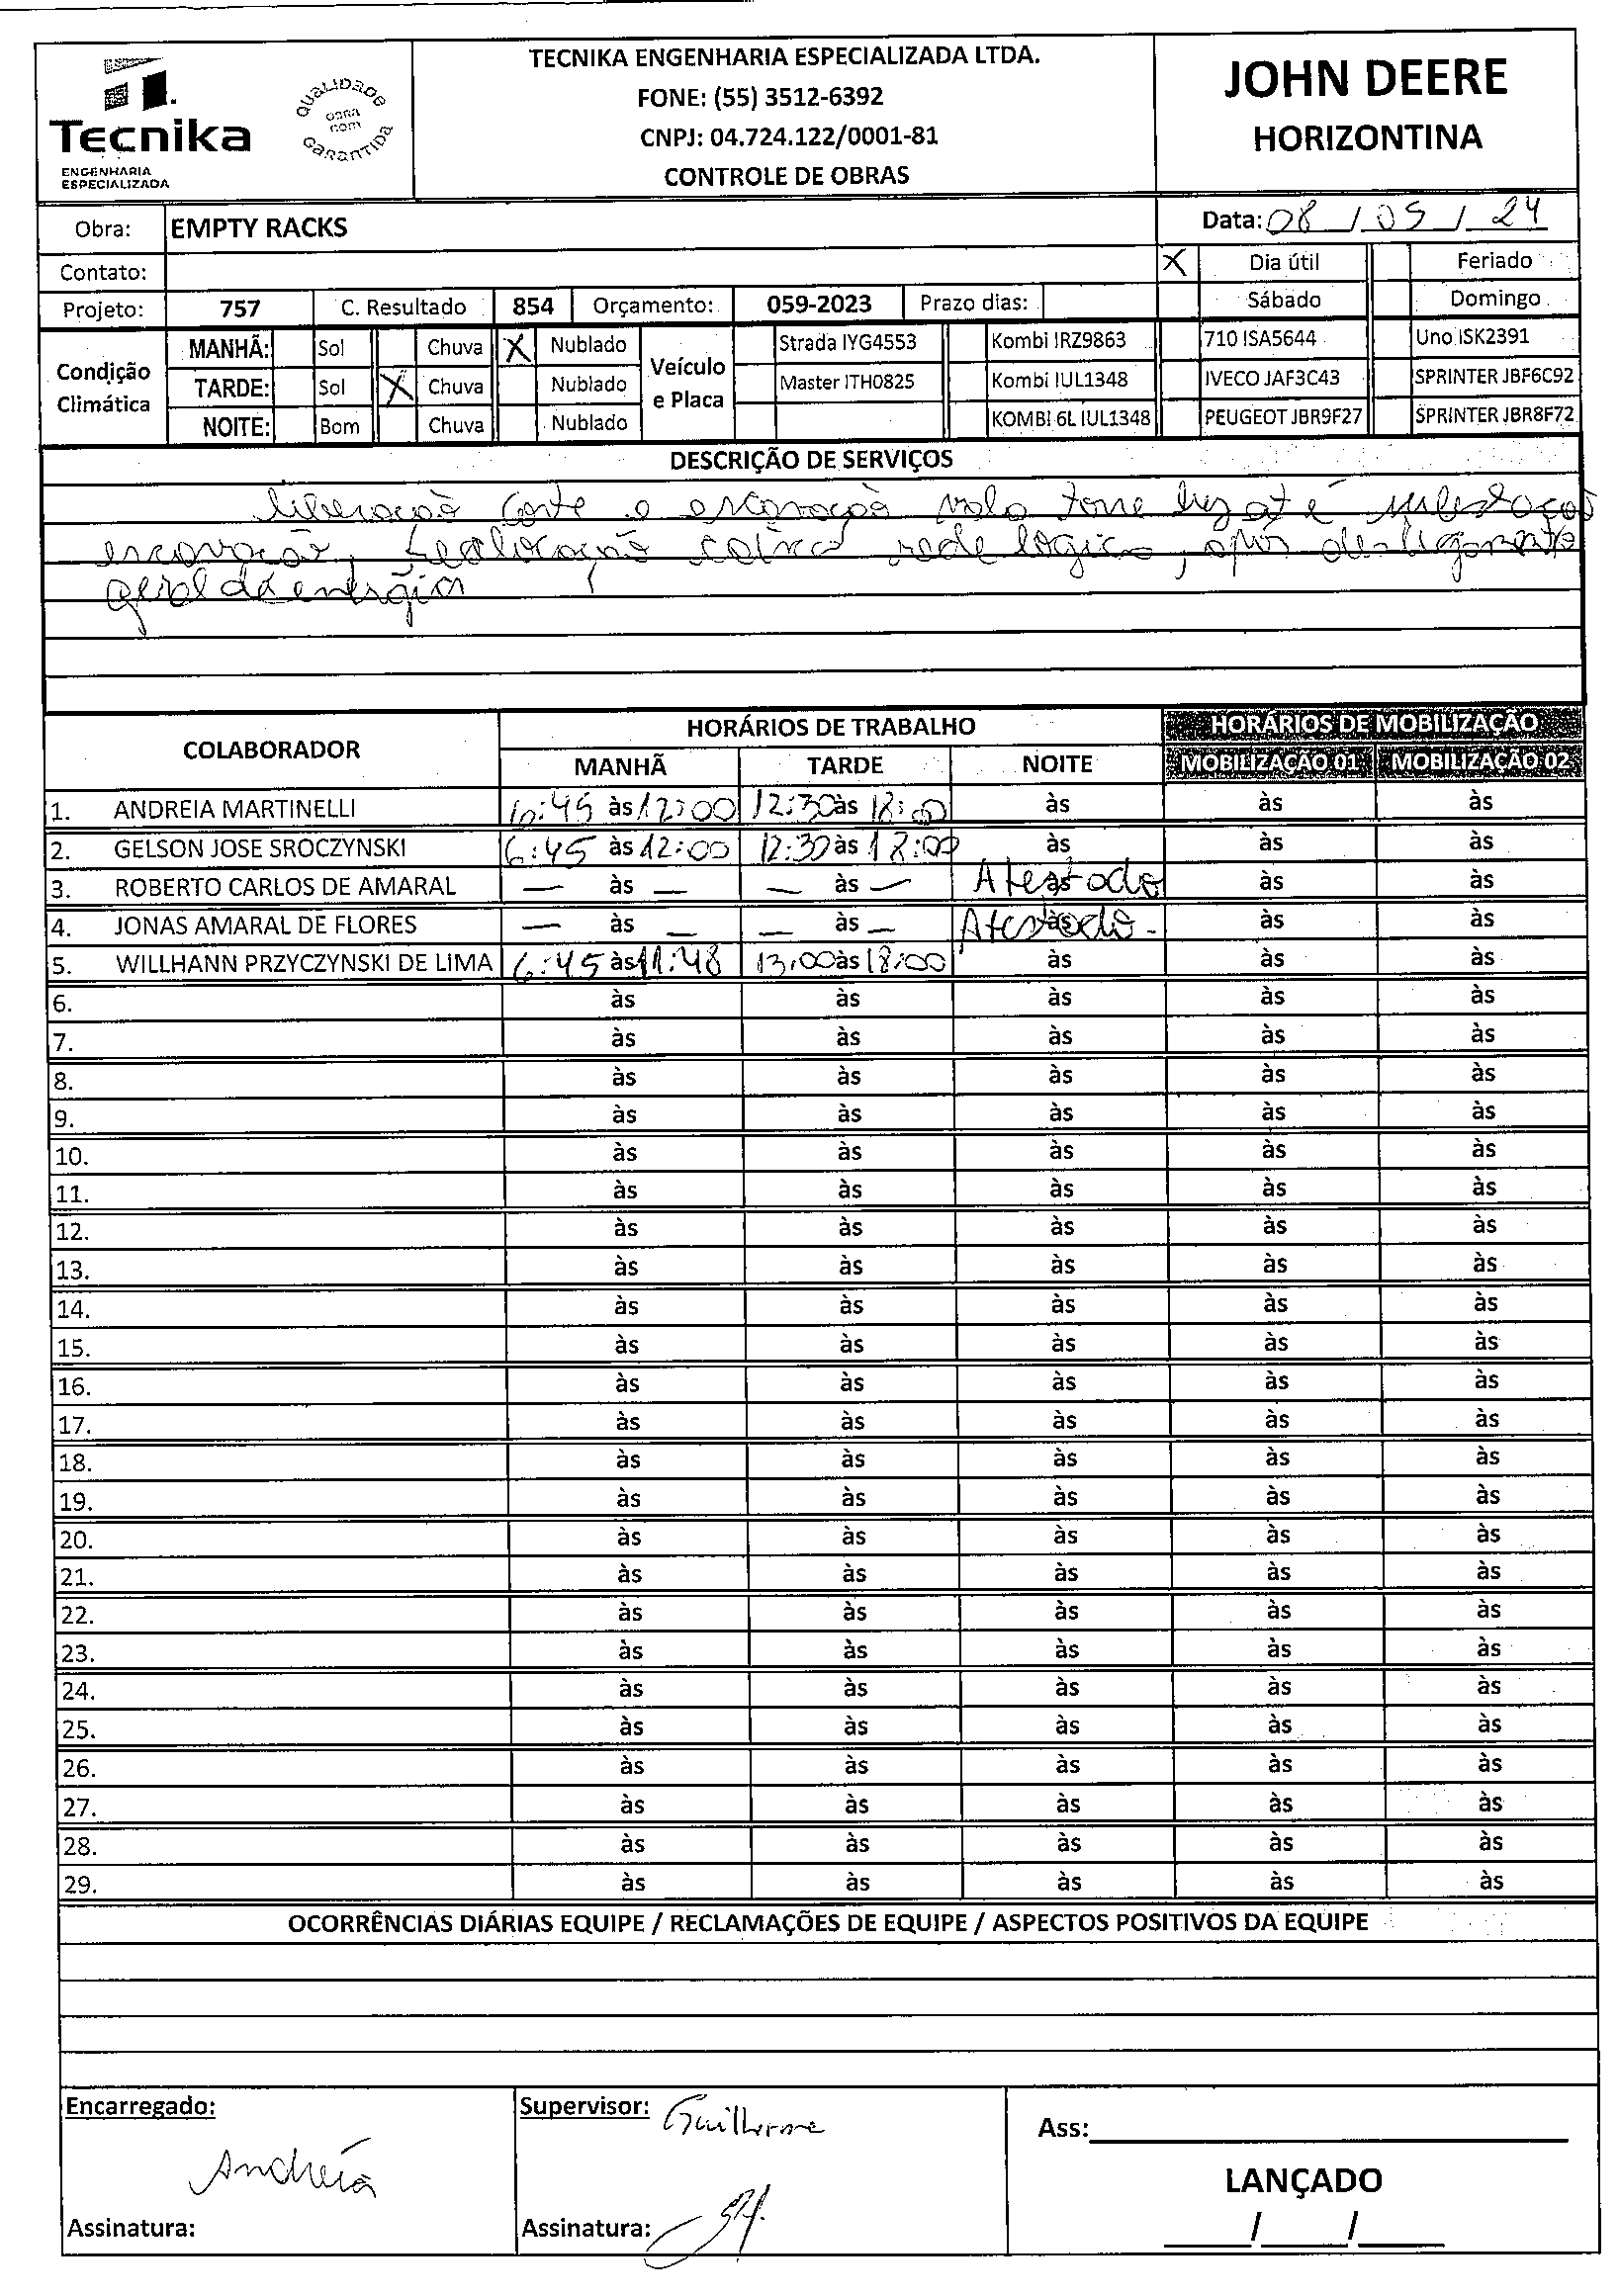 Tecnika
ENGENHARIA
ESPECIALIZADA
QUALIDADE
obra
com
GARANTIDA
TECNIKA ENGENHARIA ESPECIALIZADA LTDA.
FONE: (55) 3512-6392
CNPJ: 04.724.122/0001-81
CONTROLE DE OBRAS
JOHN DEERE
HORIZONTINA
Obra: EMPTY RACKS Data: 08 / 05 / 24
Contato: X Dia útil Feriado
Projeto: 757 C. Resultado 854 Orçamento: 059-2023 Prazo dias: Sábado Domingo
Condição Climática
MANHÃ: Sol Chuva X Nublado
TARDE: Sol X Chuva Nublado
NOITE: Bom Chuva Nublado
Veículo e Placa
Strada IYG4553 Kombi IRZ9863 710 ISA5644 Uno ISK2391
Master ITH0825 Kombi IUL1348 IVECO JAF3C43 SPRINTER JBF6C92
KOMBI 6L IUL1348 PEUGEOT JBR9F27 SPRINTER JBR8F72
DESCRIÇÃO DE SERVIÇOS
liberação corte e escavação vala torre luz até subestação
escavação, realocação rede lógica, após desligamento
geral da energia
COLABORADOR HORÁRIOS DE TRABALHO HORÁRIOS DE MOBILIZAÇÃO
MANHÃ TARDE NOITE MOBILIZAÇÃO 01 MOBILIZAÇÃO 02
1. ANDREIA MARTINELLI 6:45 às 12:00 12:30 às 18:00 às às às
2. GELSON JOSE SROCZYNSKI 6:45 às 12:00 12:30 às 18:00 às às às
3. ROBERTO CARLOS DE AMARAL — às — — às — Atestado às às às
4. JONAS AMARAL DE FLORES — às — — às — Atestado - às às às
5. WILLHANN PRZYCZYNSKI DE LIMA 6:45 às 11:48 13:00 às 18:00 às às às
6. às às às às às
7. às às às às às
8. às às às às às
9. às às às às às
10. às às às às às
11. às às às às às
12. às às às às às
13. às às às às às
14. às às às às às
15. às às às às às
16. às às às às às
17. às às às às às
18. às às às às às
19. às às às às às
20. às às às às às
21. às às às às às
22. às às às às às
23. às às às às às
24. às às às às às
25. às às às às às
26. às às às às às
27. às às às às às
28. às às às às às
29. às às às às às
OCORRÊNCIAS DIÁRIAS EQUIPE / RECLAMAÇÕES DE EQUIPE / ASPECTOS POSITIVOS DA EQUIPE
Encarregado:
Andréia
Assinatura:
Supervisor: Guilherme
Assinatura:
Ass:
LANÇADO
/ /